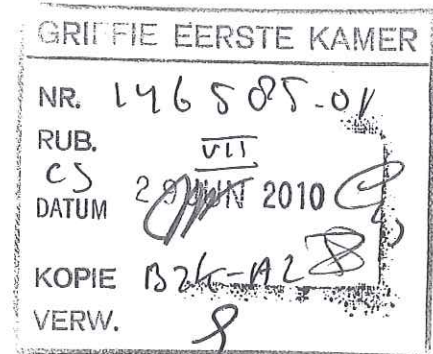 GRIFFIE EERSTE KAMER
NR. 146585-01
RUB. VII
CS
DATUM 29 JUN 2010
KOPIE BZK-AZ
VERW.